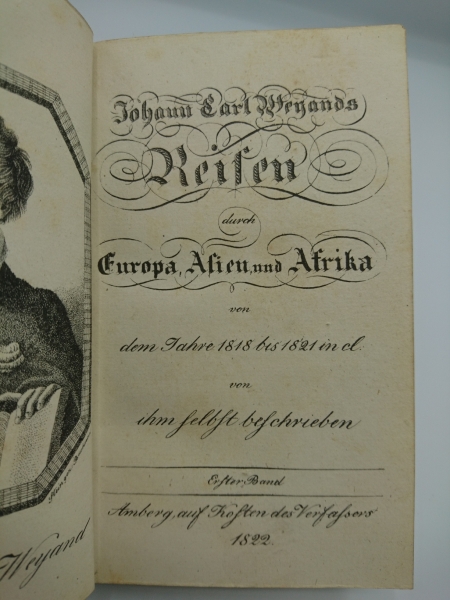 Johann Carl Weyands
Reisen
durch
Europa, Asien, und Afrika
von
dem Jahre 1818 bis 1821 incl.
von
ihm selbst beschrieben
Erster Band
Amberg, auf Kosten des Verfassers
1822.
Weyand